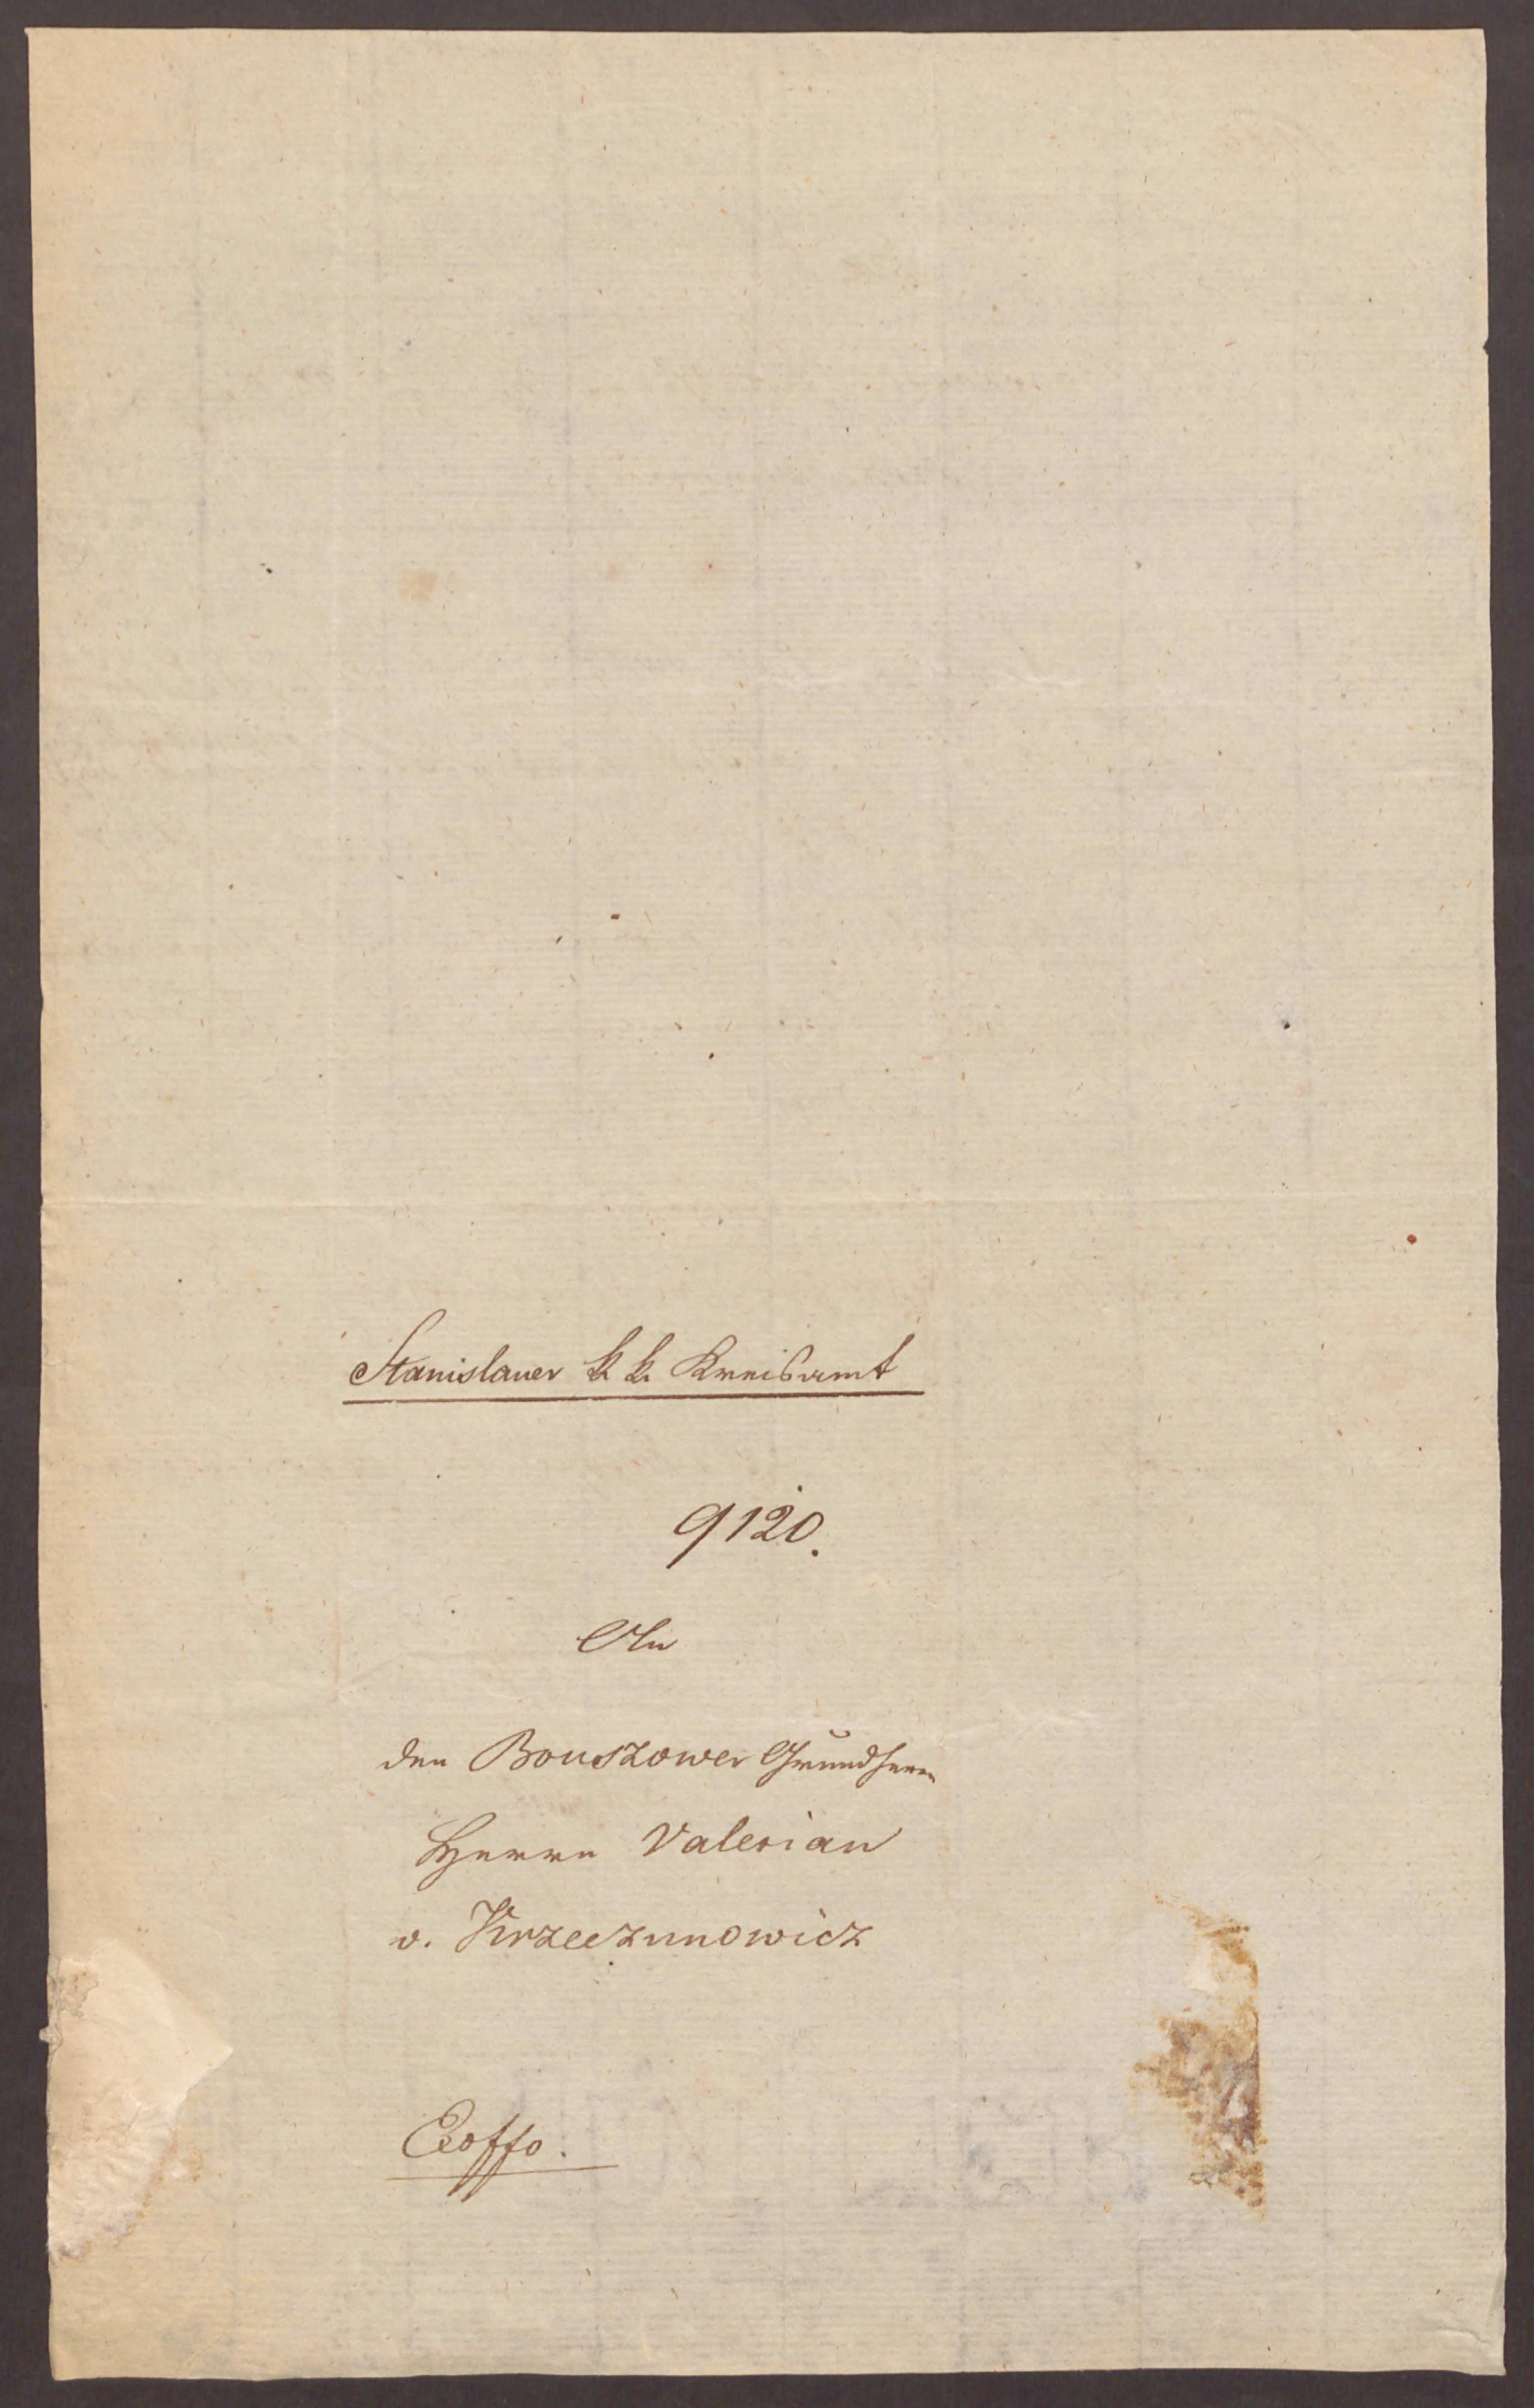 Stanislauer k. k. Kreisamt
9120.
An
den Bouszower Grundherrn
Herrn Valerian
v. Krzeczunowicz
Exoffo.